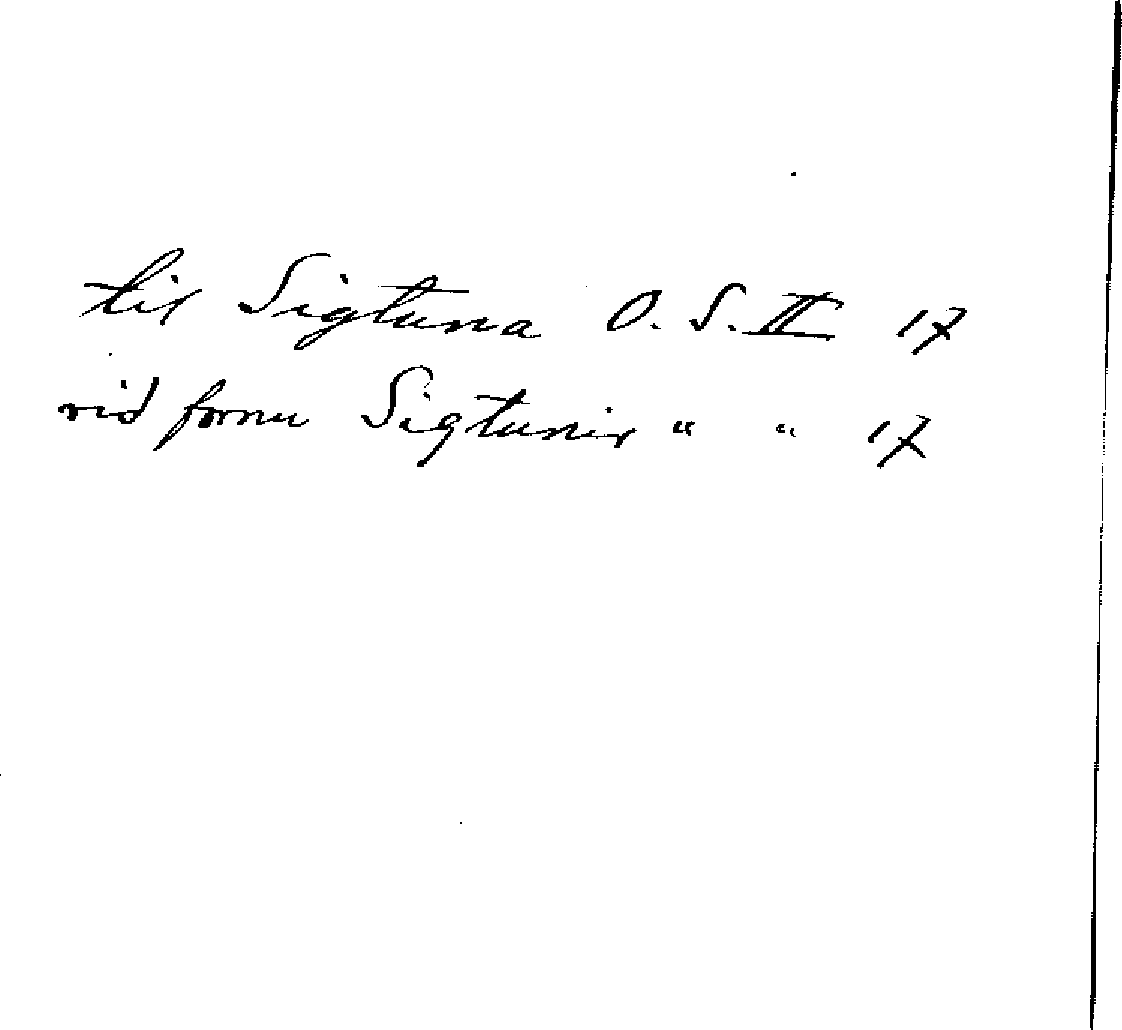 til Sigtuna O. S. II 17
vid fornu Sigtunir " " 17